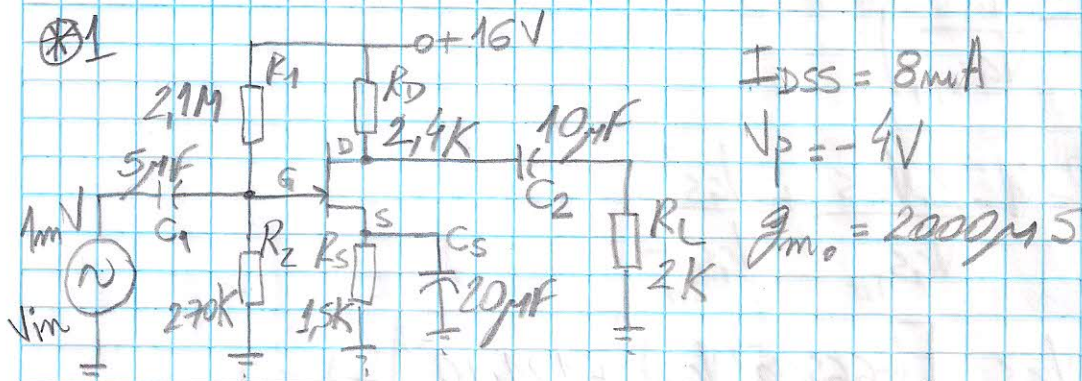 ⊛1
+16V
R1
2,1M
RD
2,4K
D
10μF
C2
5μF
C1
G
S
1mV
Vin
R2
270K
RS
1,5K
CS
20μF
RL
2K
IDSS = 8mA
VP = -4V
gmo = 2000μS